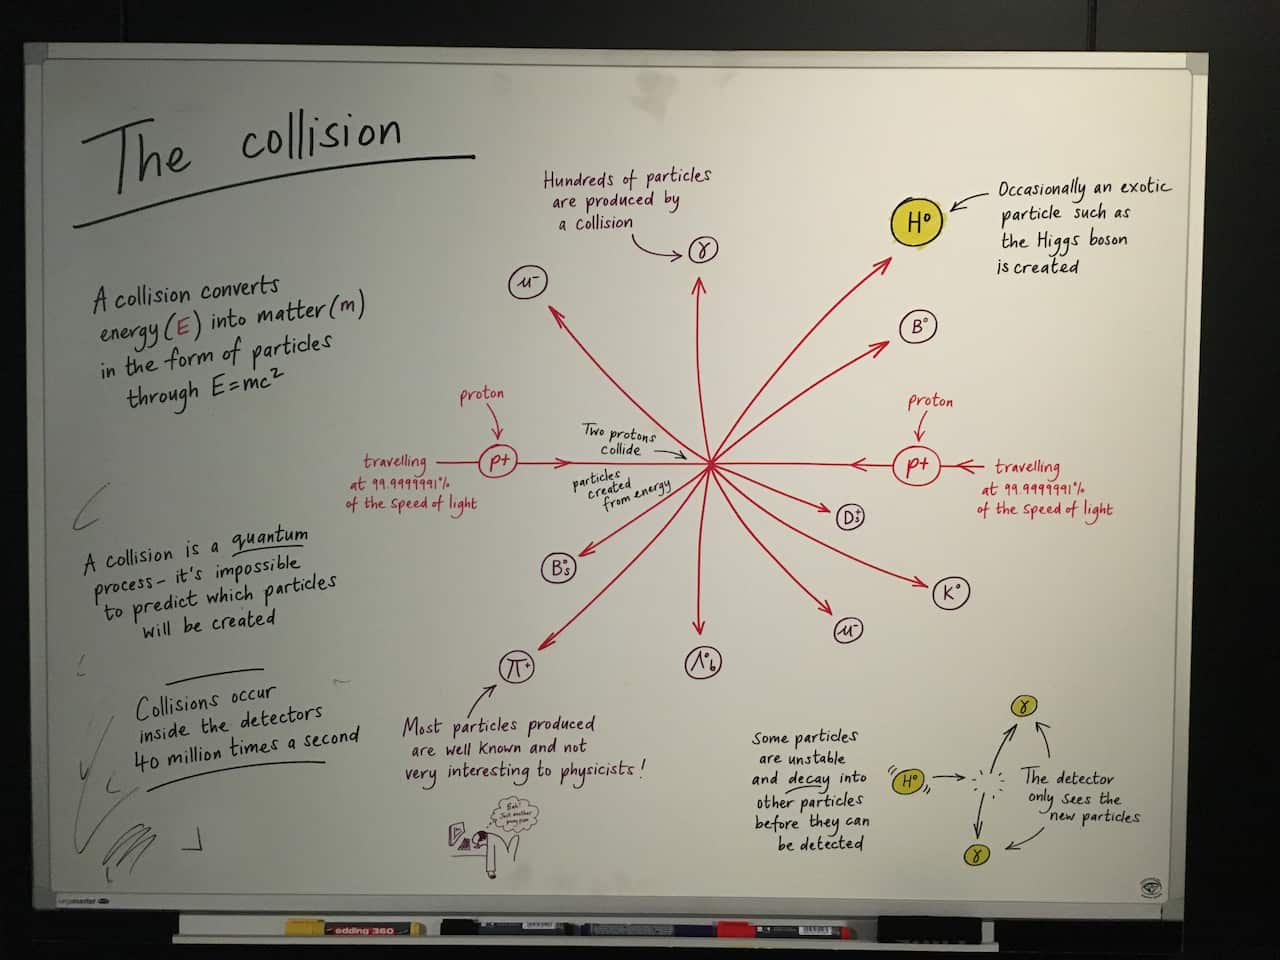 The collision
A collision converts
energy (E) into matter (m)
in the form of particles
through E=mc²
A collision is a quantum
process – it's impossible
to predict which particles
will be created
Collisions occur
inside the detectors
40 million times a second
Hundreds of particles
are produced by
a collision
γ
μ⁻
H⁰
Occasionally an exotic
particle such as
the Higgs boson
is created
B⁰
proton
p+
travelling
at 99.9999991%
of the speed of light
Two protons
collide
particles
created
from energy
proton
p+
travelling
at 99.9999991%
of the speed of light
Ds⁺
K⁰
μ⁻
Λ⁰b
B⁰s
π⁺
Most particles produced
are well known and not
very interesting to physicists!
Bah!
Just another
Some particles
are unstable
and decay into
other particles
before they can
be detected
H⁰
γ
γ
The detector
only sees the
new particles
legamaster
edding 360